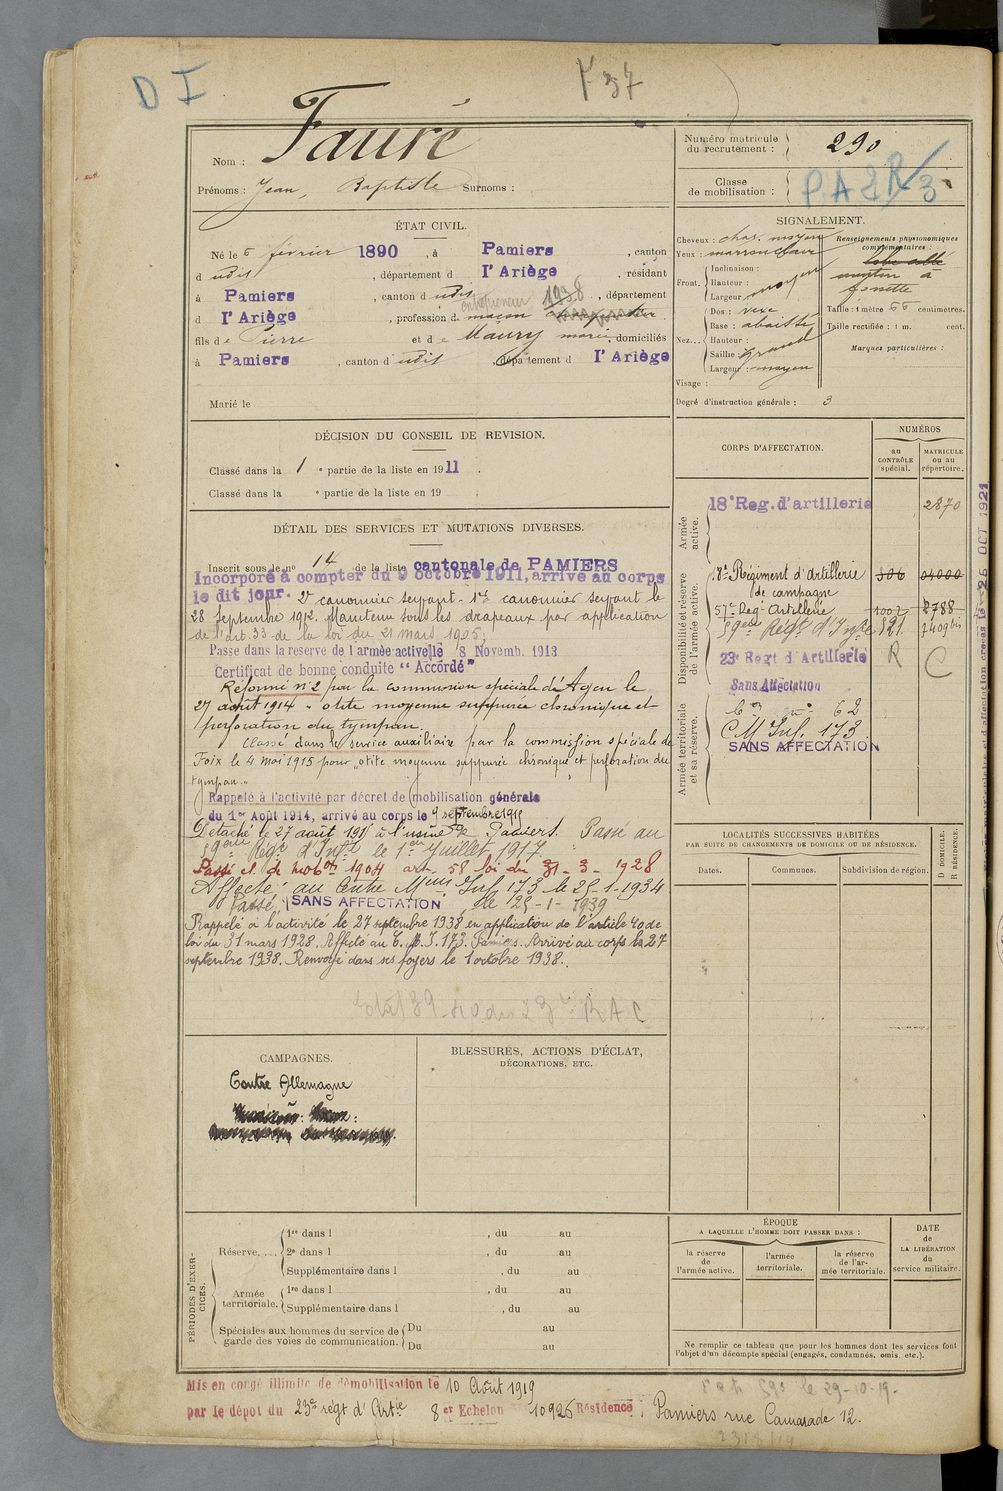 D I
F 37
Nom : Fauré
Prénoms : Jean, Baptiste Surnoms :
Numéro matricule du recrutement : 290
Classe de mobilisation : P.A 2R/3
ÉTAT CIVIL.
Né le 5 février 1890, à Pamiers, canton
d udit, département d l'Ariège, résidant
à Pamiers, canton d udit, département
entrepreneur 1938
d l'Ariège, profession d maçon
fils de Pierre et de Maury marie, domiciliés
à Pamiers, canton d udit, département d l'Ariège
Marié le
SIGNALEMENT.
Cheveux : chat. moyen
Yeux : marron clair
Front. Inclinaison :
Hauteur : moyen
Largeur :
Nez... Dos : vexe
Base : abaissée
Hauteur :
Saillie : grand
Largeur : moyen
Visage :
Renseignements physionomiques complémentaires :
menton à
fossette
Taille : 1 mètre 55 centimètres.
Taille rectifiée : 1 m. cent.
Marques particulières :
Degré d'instruction générale : 3
DÉCISION DU CONSEIL DE REVISION.
Classé dans la 1e partie de la liste en 1911.
Classé dans la e partie de la liste en 19 .
DÉTAIL DES SERVICES ET MUTATIONS DIVERSES.
Inscrit sous le no 14 de la liste cantonale de PAMIERS
Incorporé à compter du 9 octobre 1911, arrivé au corps
le dit jour. 2e canonnier servant - 1er canonnier servant le
28 Septembre 1912. Maintenu sous les drapeaux par application
de l'art. 33 de la loi du 21 mars 1905.
Passé dans la reserve de l'armée activelle 8 Novemb. 1913
Certificat de bonne conduite "Accordé"
Réformé n°2 par la commission spéciale d'Agen le
27 août 1914 - otite moyenne suppurée chronique et
perforation du tympan.
Classé dans le service auxiliaire par la commission spéciale de
Foix le 4 mai 1915 pour "otite moyenne suppurée chronique et perforation du
tympan."
Rappelé à l'activité par décret de mobilisation générale
du 1er Août 1914, arrivé au corps le 9 septembre 1915
Détaché le 27 août 1917 à l'usine de Pamiers. Passé au
59eme Régt d'Infie le 1er Juillet 1917.
Passé cl. de mobon 1904 art. 58 loi du 31-3-1928
Affecté au Centre Mmon Inf. 173 le 25-1-1934
Passé SANS AFFECTATION le 25-1-1939
Rappelé à l'activité le 27 septembre 1938 en application de l'article 40 de
loi du 31 mars 1928. Affecté au C. M. I. 173. Pamiers. Arrivé au corps le 27
septembre 1938. Renvoyé dans ses foyers le 1 octobre 1938.
CORPS D'AFFECTATION.
NUMÉROS
au CONTRÔLE spécial.
MATRICULE OU AU répertoire.
Armée active.
18e Reg. d'artillerie 2870
Disponibilité et réserve de l'armée active.
18e Régiment d'Artillerie de campagne 306 04000
57e Reg. Artillerie 1007 2788
59eme Régt d'Infie 821 7409bis
23e Regt d'Artillerie R C
Sans Affectation
Armée territoriale et sa réserve.
62
C M Inf. 173
SANS AFFECTATION
LOCALITÉS SUCCESSIVES HABITÉES
PAR SUITE DE CHANGEMENTS DE DOMICILE OU DE RÉSIDENCE.
Dates. Communes. Subdivision de région.
D DOMICILE.
R RÉSIDENCE.
CAMPAGNES.
Contre Allemagne
BLESSURES, ACTIONS D'ÉCLAT,
DÉCORATIONS, ETC.
PÉRIODES D'EXERCICES.
Réserve.... 1re dans l , du au
2e dans l , du au
Supplémentaire dans l , du au
Armée territoriale. 1re dans l , du au
Supplémentaire dans l , du au
Spéciales aux hommes du service de garde des voies de communication. Du au
Du au
ÉPOQUE
A LAQUELLE L'HOMME DOIT PASSER DANS :
la réserve de l'armée active.
l'armée territoriale.
la réserve de l'armée territoriale.
DATE de LA LIBÉRATION du service militaire.
Ne remplir ce tableau que pour les hommes dont les services font
l'objet d'un décompte spécial (engagés, condamnés, omis, etc.).
Mis en congé illimité de démobilisation le 10 Août 1919
par le dépot du 23e régt d'Artie 8er Echelon 10926 Résidence : Pamiers rue Camarade 12.